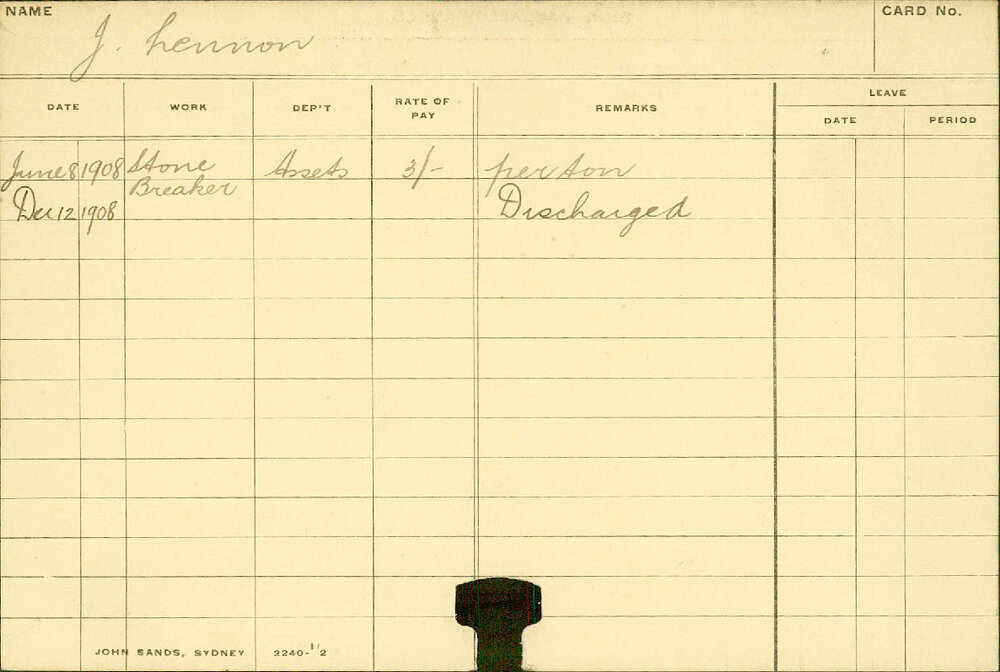 NAME
J. Lennon
CARD No.
DATE WORK DEP'T RATE OF PAY REMARKS LEAVE
DATE PERIOD
June 8 1908 Stone Assets 3/- per ton
Breaker
Dec 12 1908 Discharged
JOHN SANDS, SYDNEY 2240-1/2